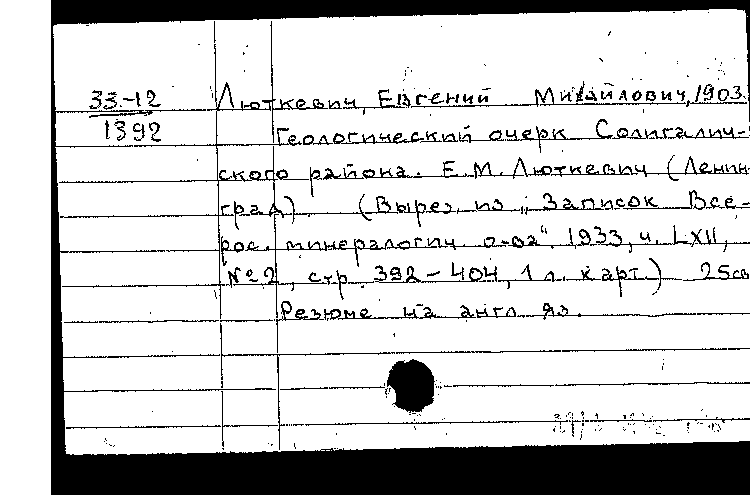 33-12 Люткевич, Евгений Михайлович, 1903.
1392 Геологический очерк Солигалич-
ского района. Е.М. Люткевич (Ленин-
град). (Вырез. из „Записок Все-
рос. минералогич. о-ва“. 1933, ч. LXII,
№2, стр. 392-404, 1 л. карт.) 25см
Резюме на англ яз.